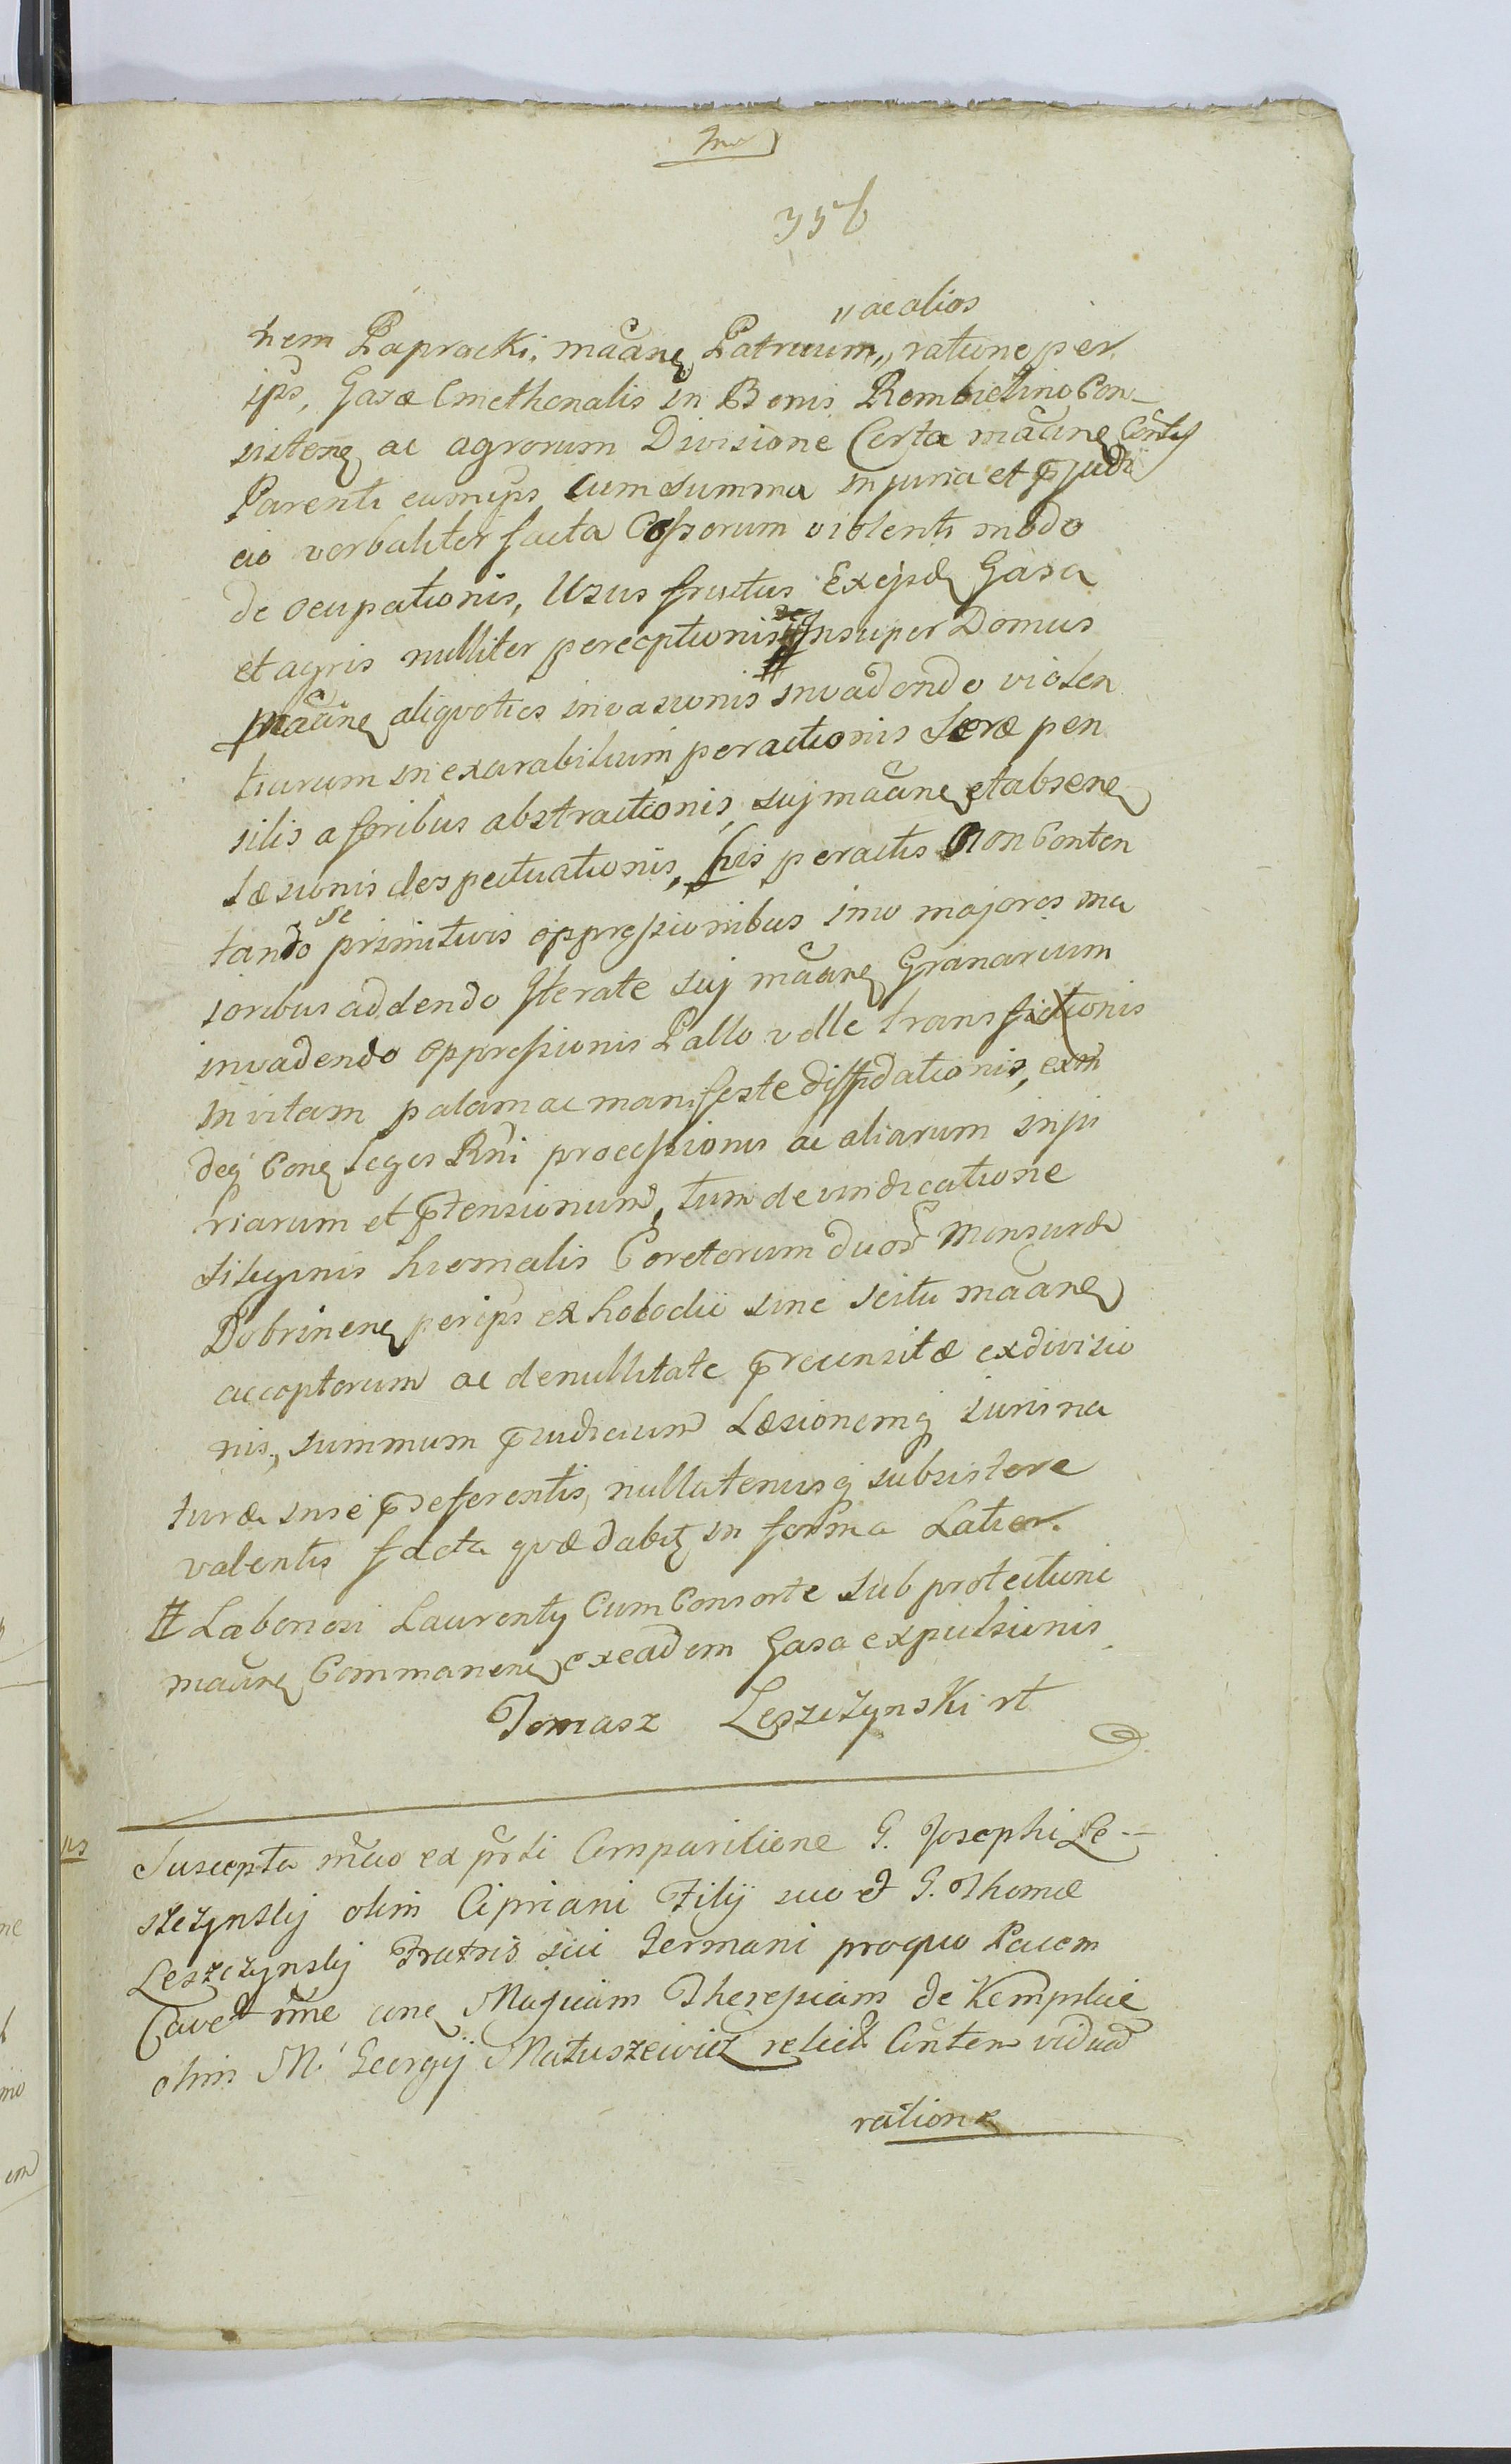 356
„ ac alios
nem Paprocki, mãanẽ Patruum „ ratione per
ips, Gasæ Cmethonalis in Bonis Rembielino Con_
sistenẽ ac agrorum Divisione Certa mãanẽ
Parenti eamips Cum Summa injuria et pjudi
cio verbaliter facta Cossorum violenti modo
de ocupationis, Usus fructus Ex ejsd Gasa
et agris nulliter perceptionis Insuper Domus
mãanẽ aliqvoties invasionis # invadendo violen
tiarum inexarabilium peractionis Seræ pen
silis a foribus abstractionis, suj mãanẽ et absenẽ
Læsionis despectuationis, his peractis Non Conten
tando se primitivis oppressionibus imo majores ma
ioribus addendo Iterate suj mãanẽ Granarium
invadendo oppressionis Pallo velle transfictionis
in vitam palam ac manifeste diffidationis, exm
deq Conẽ Leges Rni processionis ac aliarum inju
riarum et ptensionum, tum de vindicatione
siliginis hiemalis Coretorum duor Mensuræ
Dobrinenẽ perips ex hobodii sine scitu mãanẽ
acceptorum ac denullitate precensitæ exdivisio
nis, summum pjudicium Læsionemq juris na
turæ inse pseferentis, nullatenusq subsistere
valentis facta qvæ dabit in forma Latior.
# Laboriosi Laurenty Cum Consorte sub protectione
mãanẽ Commanenẽ exeadem Gasa expulsionis
Tomasz Leszczynski rt
Suscepta mãio ex prti Comparitione G. Josephi Le-
szczynskij olim Cipriani Filij suo et G. Thomæ
Leszczynskij Fratris sui Germani proquo Pacem
Cavet mne conẽ Magcam Theressiam de Kempskie
olim M. Georgij Matuszewicz relict Cõntem viduã
ratione